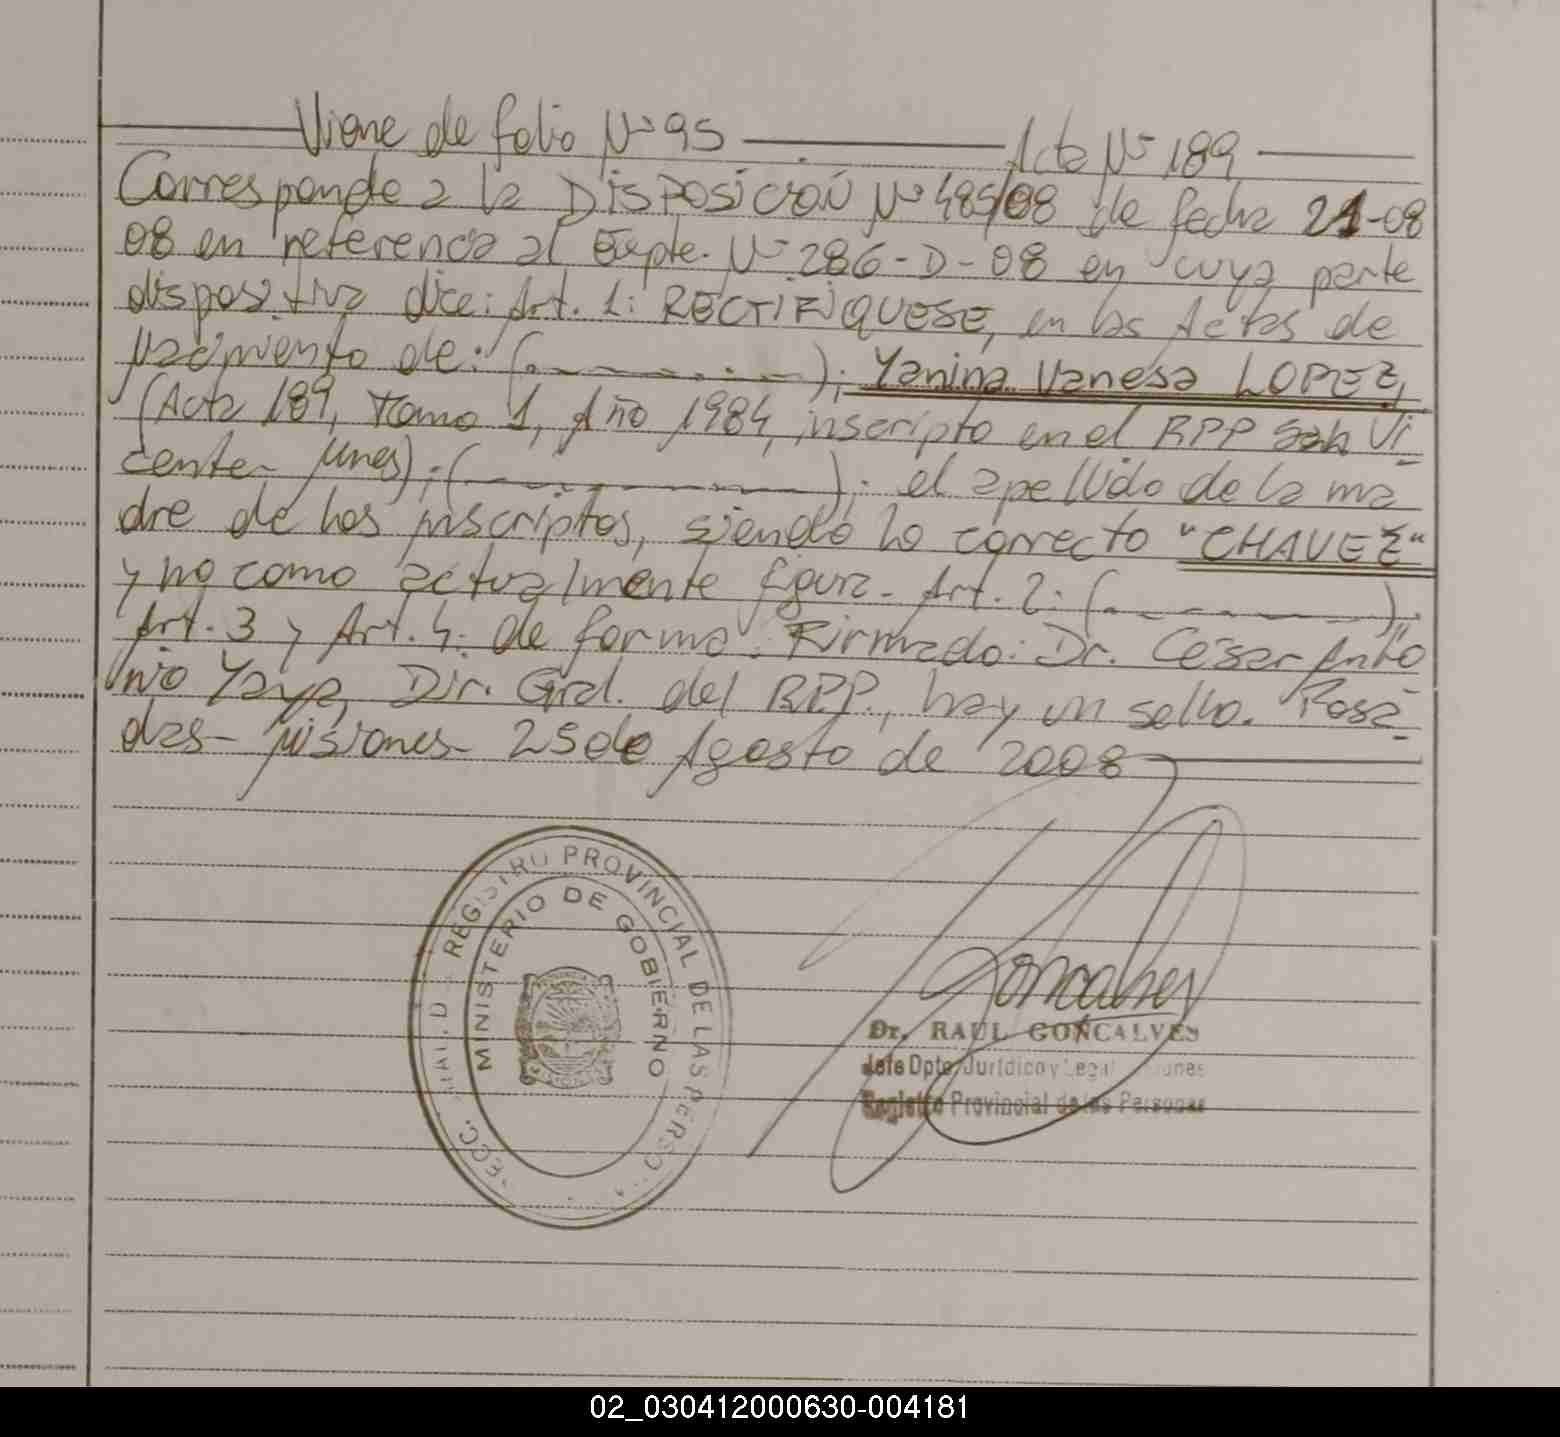 Viene de folio Nº 95 Acta Nº 189
Corresponde a la DISPOSICION Nº 485/08 de fecha 21-08
08 en referencia al Expte. Nº 286-D-08 en cuya parte
dispositiva dice: Art. 1: RECTIFIQUESE, en las Actas de
Nacimiento de: (. _ _ _ . _ _); Yanina Vanesa LOPEZ,
(Acta 189, Tomo 1, Año 1984, inscripto en el RPP San Vi
cente- Mnes); (_ _ _ _ _ _); el apellido de la ma
dre de los inscriptos, siendo lo correcto "CHAVEZ"
y no como actualmente figura. Art. 2: (_ _ _ _ _).
Art. 3 y Art. 4: de forma. Firmado: Dr. César Anto
nio Yaya, Dir. Gral. del RPP., hay un sello. Posa
das- Misiones- 25 de Agosto de 2008
REGISTRO PROVINCIAL DE LAS
MINISTERIO DE GOBIERNO
Goncalves
Dr. RAUL GONCALVES
Jefe Dpto. Jurídico y Legal
Registro Provincial de las Personas
02_030412000630-004181